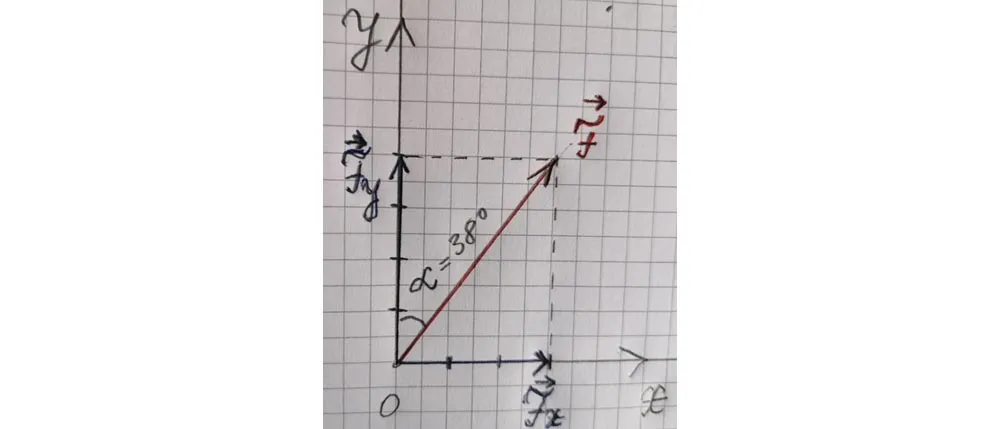 y
F⃗
F⃗y
α=38°
0
F⃗x
x